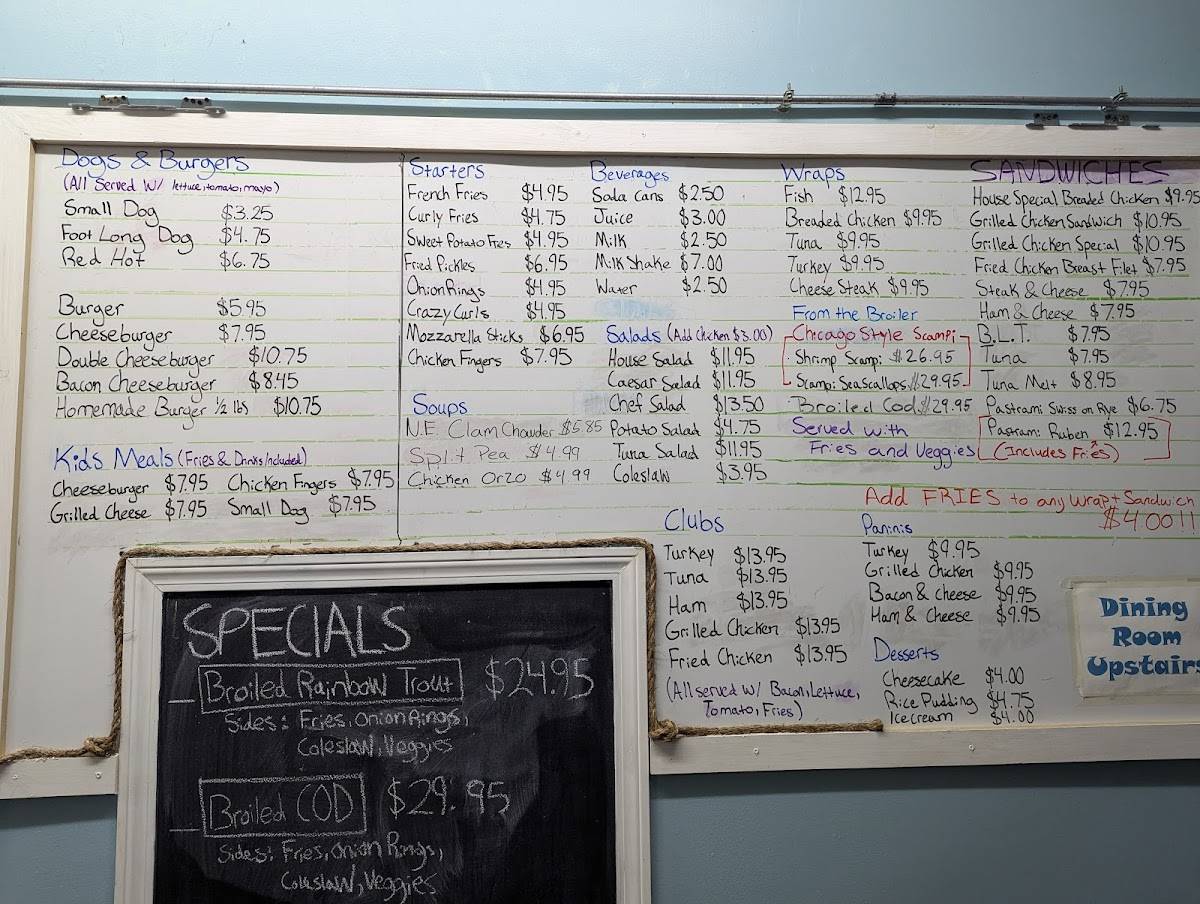 Dogs & Burgers
(All Served W/ lettuce, tomato, mayo)
Small Dog $3.25
Foot Long Dog $4.75
Red Hot $6.75
Burger $5.95
Cheeseburger $7.95
Double Cheeseburger $10.75
Bacon Cheeseburger $8.45
Homemade Burger 1/2 lbs $10.75
Kids Meals (Fries & Drinks Included)
Cheeseburger $7.95 Chicken Fingers $7.95
Grilled Cheese $7.95 Small Dog $7.95
Starters
French Fries $4.95
Curly Fries $4.75
Sweet Potato Fries $4.95
Fried Pickles $6.95
Onion Rings $4.95
Crazy Curls $4.95
Mozzarella Sticks $6.95
Chicken Fingers $7.95
Soups
N.E. Clam Chowder $5.85
Split Pea $4.99
Chicken Orzo $4.99
Beverages
Soda Cans $2.50
Juice $3.00
Milk $2.50
Milk Shake $7.00
Water $2.50
Salads (Add Chicken $3.00)
House Salad $11.95
Caesar Salad $11.95
Chef Salad $13.50
Potato Salad $4.75
Tuna Salad $11.95
Coleslaw $3.95
Wraps
Fish $12.95
Breaded Chicken $9.95
Tuna $9.95
Turkey $9.95
Cheese Steak $9.95
From the Broiler
Chicago Style Scampi
Shrimp Scampi $26.95
Scampi Sea Scallops $29.95
Broiled Cod $29.95
Served with
Fries and Veggies
SANDWICHES
House Special Breaded Chicken $9.95
Grilled Chicken Sandwich $10.95
Grilled Chicken Special $10.95
Fried Chicken Breast Filet $7.95
Steak & Cheese $7.95
Ham & Cheese $7.95
B.L.T. $7.95
Tuna $7.95
Tuna Melt $8.95
Pastrami Swiss on Rye $6.75
Pastrami Ruben $12.95
(Includes Fries)
Add FRIES to any Wrap + Sandwich
$4.00!!
Clubs
Turkey $13.95
Tuna $13.95
Ham $13.95
Grilled Chicken $13.95
Fried Chicken $13.95
(All served W/ Bacon, Lettuce,
Tomato, Fries)
Paninis
Turkey $9.95
Grilled Chicken $9.95
Bacon & Cheese $9.95
Ham & Cheese $9.95
Desserts
Cheesecake $4.00
Rice Pudding $4.75
Ice cream $4.00
Dining
Room
Upstairs
SPECIALS
Broiled Rainbow Trout $24.95
Sides: Fries, Onion Rings,
Coleslaw, Veggies
Broiled COD $29.95
Sides: Fries, Onion Rings,
Coleslaw, Veggies